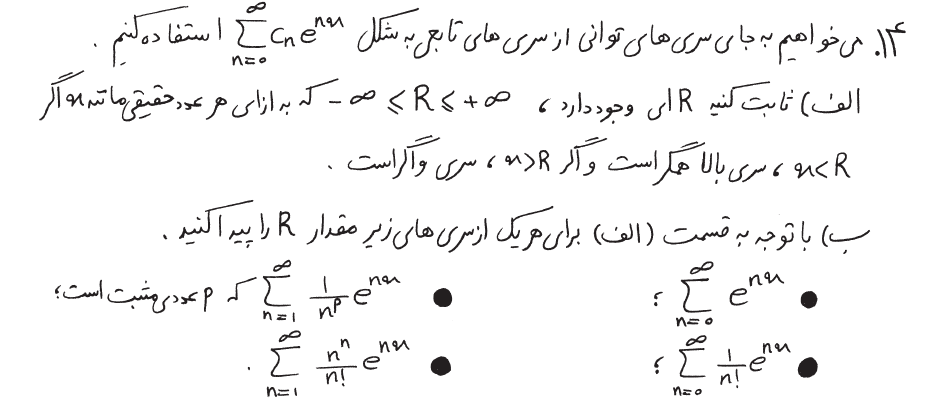 ۱۴. می‌خواهیم به جای سری‌های توانی از سری‌های تابعی به شکل $\sum_{n=0}^{\infty} c_n e^{nx}$ استفاده کنیم.
الف) ثابت کنید R ای وجود دارد، $-\infty \leqslant R \leqslant +\infty$ که به ازای هر عدد حقیقی مانند x اگر
x<R، سری بالا همگراست و اگر x>R، سری واگراست.
ب) با توجه به قسمت (الف) برای هر یک از سری‌های زیر مقدار R را پیدا کنید.
• $\sum_{n=0}^{\infty} e^{nx}$ ؛ • $\sum_{n=1}^{\infty} \frac{1}{n^p} e^{nx}$ که p عددی مثبت است؛
• $\sum_{n=0}^{\infty} \frac{1}{n!} e^{nx}$ ؛ • $\sum_{n=1}^{\infty} \frac{n^n}{n!} e^{nx}$ .